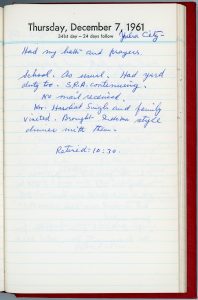 Thursday, December 7, 1961
341st day — 24 days follow Yuba City
Had my bath and prayers.
School. As usual. Had yard
duty too. S.R.A. continuing.
No mail received.
Mr. Harbhat Singh and family
visited. Brought Indian style
dinner with them.
Retired: 10:30.